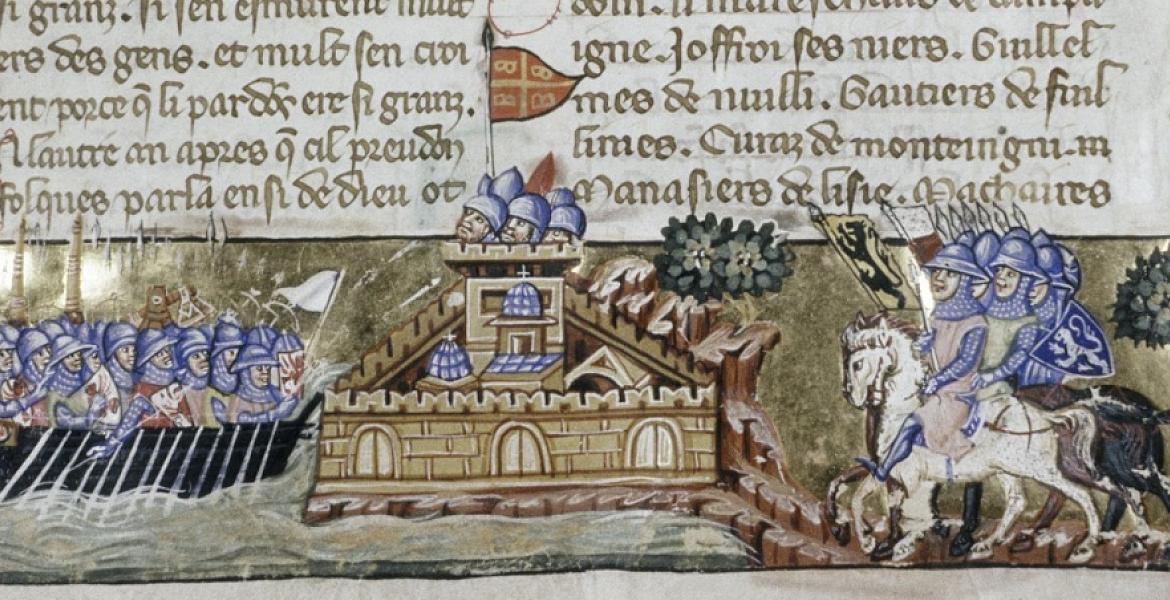 si granz. si sen esmurent mult
ers des gens. et mult sen croi
ent porce q̃ li pardõs ere si granz.
A lautre an apres q̃ cil preudon
folques parla ensi de dieu ot
dom. li mareschaus de campa
igne. Joffroi ses niers. Guillel
mes de nuilli. Gautiers de fiul
lines. Euraz de monteingni. m
Manasiers de lisle. Machaires